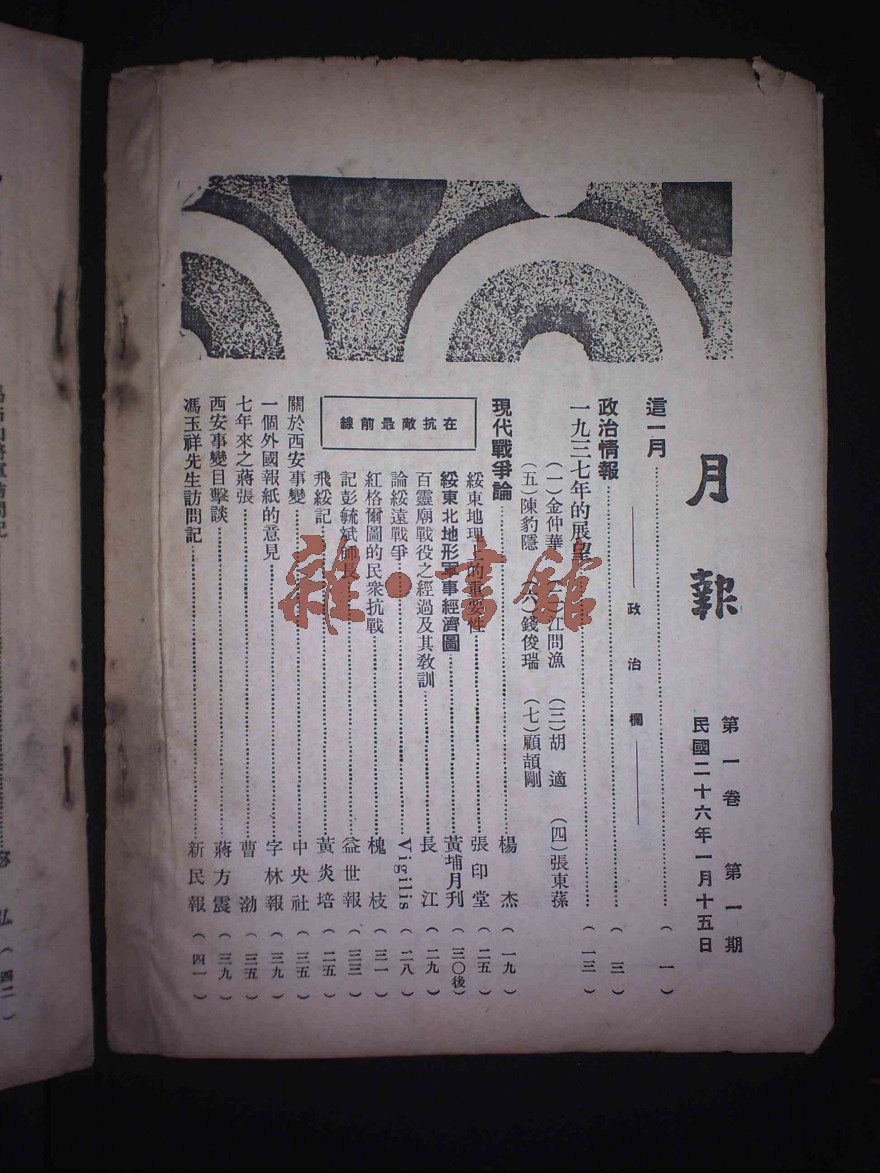 月報
第一卷 第一期
民國二十六年一月十五日
這一月……(一)
——政治欄——
政治情報……(三)
一九三七年的展望……(一三)
(一)金仲華 (二)江問漁 (三)胡適 (四)張東蓀
(五)陳豹隱 (六)錢俊瑞 (七)顧頡剛
現代戰爭論……楊杰(一九)
在抗敵最前線
綏東地理上的重要性……張印堂(二五)
綏東北地形軍事經濟圖……黃埔月刊(三〇後)
百靈廟戰役之經過及其教訓……長江(二九)
論綏遠戰爭……Vigilis(二八)
紅格爾圖的民衆抗戰……槐枝(三一)
記彭毓斌師長……益世報(三三)
飛綏記……黃炎培(二五)
關於西安事變……中央社(三五)
一個外國報紙的意見……字林報(三九)
七年來之蔣張……曹渤(三五)
西安事變目擊談……蔣方震(三九)
馮玉祥先生訪問記……新民報(四一)
雜·書館
(四二)